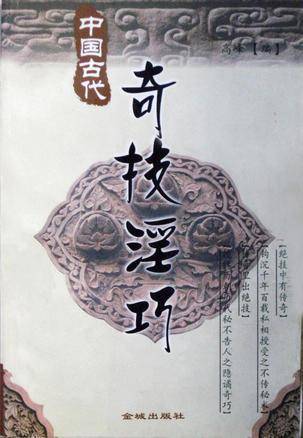 中国古代
奇技淫巧
高峰【编】
【绝技中有传奇】
钩沉千年百载私相授受之不传秘
里出绝技】
秘不告人之隐谲奇巧
金城出版社